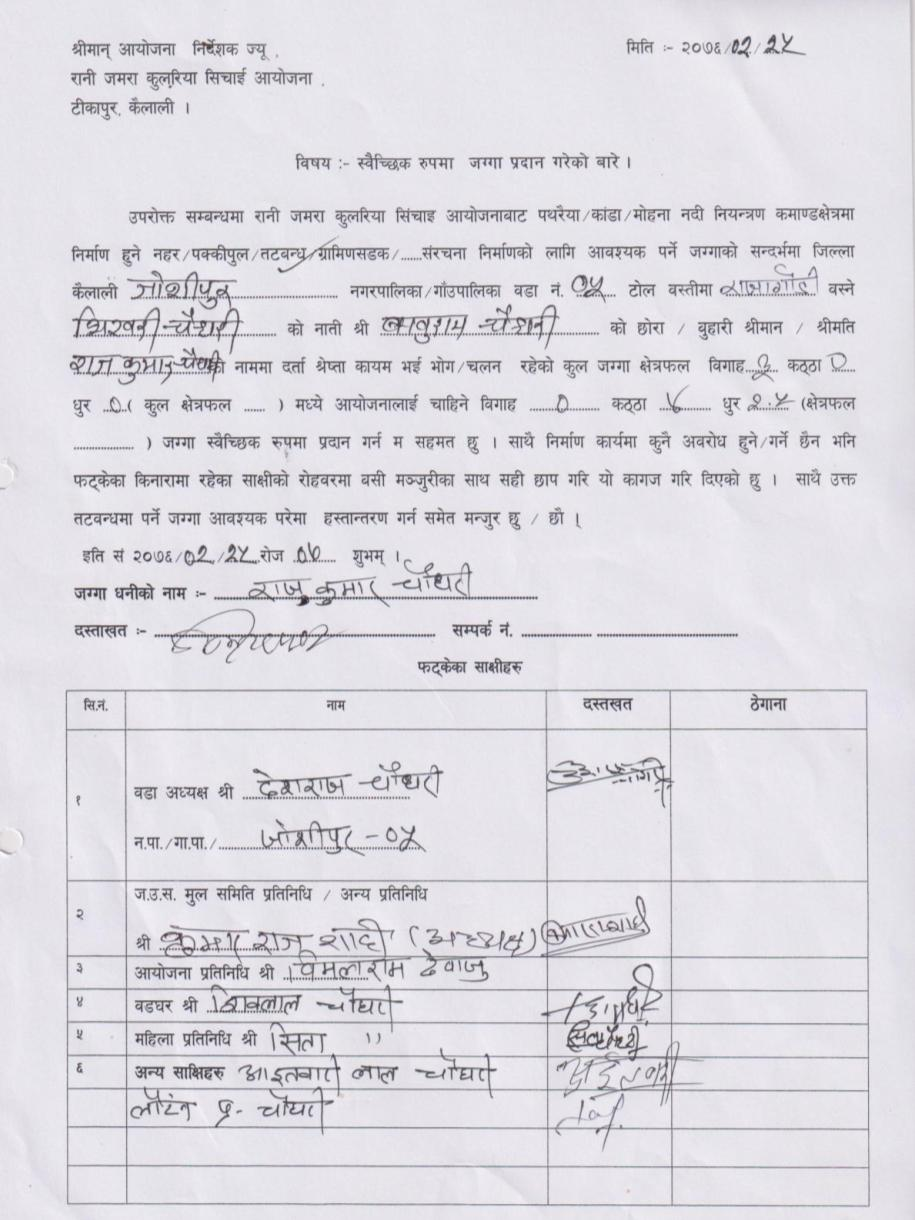 श्रीमान् आयोजना निर्देशक ज्यू , मिति :- २०७६/02/2५
रानी जमरा कुलरिया सिचाई आयोजना .
टीकापुर, कैलाली ।
विषय :- स्वैच्छिक रुपमा जग्गा प्रदान गरेको बारे ।
उपरोक्त सम्बन्धमा रानी जमरा कुलरिया सिंचाइ आयोजनाबाट पथरैया/कांडा/मोहना नदी नियन्त्रण कमाण्डक्षेत्रमा
निर्माण हुने नहर/पक्कीपुल/तटबन्ध/ग्रामिणसडक/......संरचना निर्माणको लागि आवश्यक पर्ने जग्गाको सन्दर्भमा जिल्ला
कैलाली जोशीपुर नगरपालिका/गाँउपालिका वडा नं. ०५ टोल वस्तीमा वस्ने
चौधरी को नाती श्री बाबुराम चौधरी को छोरा / वुहारी श्रीमान / श्रीमति
राजु कुमार चौधरी को नाममा दर्ता श्रेष्ता कायम भई भोग/चलन रहेको कुल जग्गा क्षेत्रफल विगाह कठ्ठा 0
धुर ..0.( कुल क्षेत्रफल ...... ) मध्ये आयोजनालाई चाहिने विगाह ....0.... कठ्ठा धुर २.५ (क्षेत्रफल
.................. ) जग्गा स्वैच्छिक रुपमा प्रदान गर्न म सहमत छु । साथै निर्माण कार्यमा कुनै अवरोध हुने/गर्ने छैन भनि
फट्केका किनारामा रहेका साक्षीको रोहवरमा वसी मञ्जुरीका साथ सही छाप गरि यो कागज गरि दिएको छु । साथै उक्त
तटवन्धमा पर्ने जग्गा आवश्यक परेमा हस्तान्तरण गर्न समेत मन्जुर छु / छौ ।
इति सं २०७६/02/2५ रोज शुभम् ।
जग्गा धनीको नाम :- राजु कुमार चौधरी
दस्ताखत :- सम्पर्क नं. ..................
फट्केका साक्षीहरु
सि.नं. नाम दस्तखत ठेगाना
१ वडा अध्यक्ष श्री देशराज चौधरी
न.पा./गा.पा./ जोशीपुर -०५
२ ज.उ.स. मुल समिति प्रतिनिधि / अन्य प्रतिनिधि
श्री राज शाही (अध्यक्ष)
३ आयोजना प्रतिनिधि श्री विमलाराम देवाजु
४ वडघर श्री शिवलाल चौधरी
५ महिला प्रतिनिधि श्री सिता ,,
६ अन्य साक्षिहरु आइतवारी लाल चौधरी
प्र. चौधरी